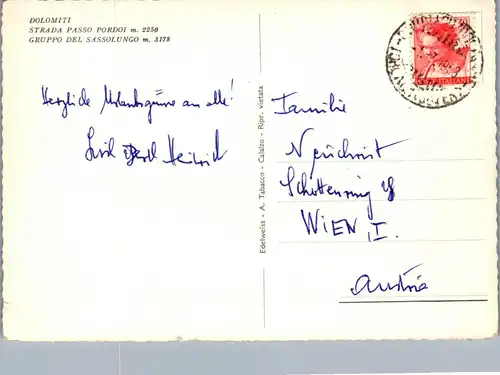 DOLOMITI
STRADA PASSO PORDOI m. 2250
GRUPPO DEL SASSOLUNGO m. 3178
Herzliche Urlaubsgrüsse an alle!
Heinrich
Edelweiss - A. Tabacco - Calalzo - Ripr. vietata
Familie
Schottenring 18
WIEN, I.
Austria